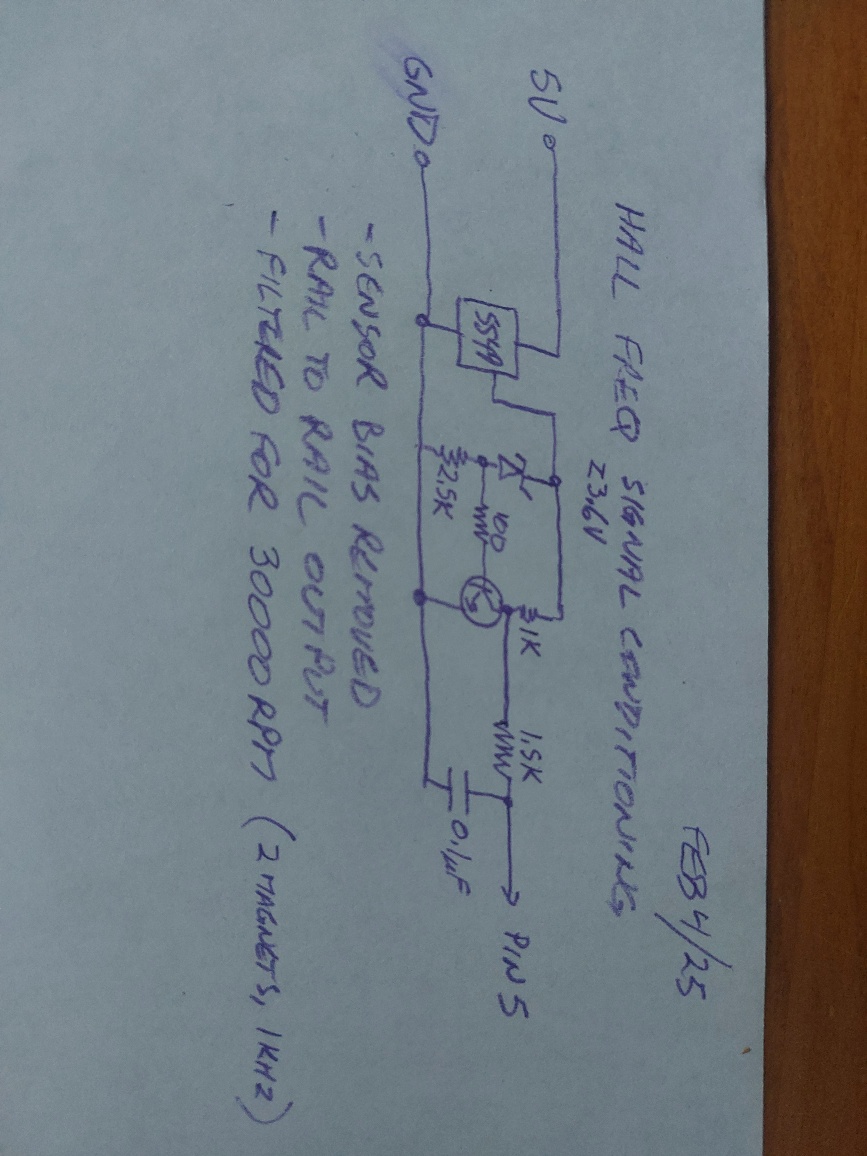 FEB 4/25
HALL FREQ SIGNAL CONDITIONING
Z3.6V
5V
SS49
1K
1.5K
PIN 5
100
2.5K
0.1µF
GND
- SENSOR BIAS REMOVED
- RAIL TO RAIL OUTPUT
- FILTERED FOR 30000 RPM (2 MAGNETS, 1KHZ)